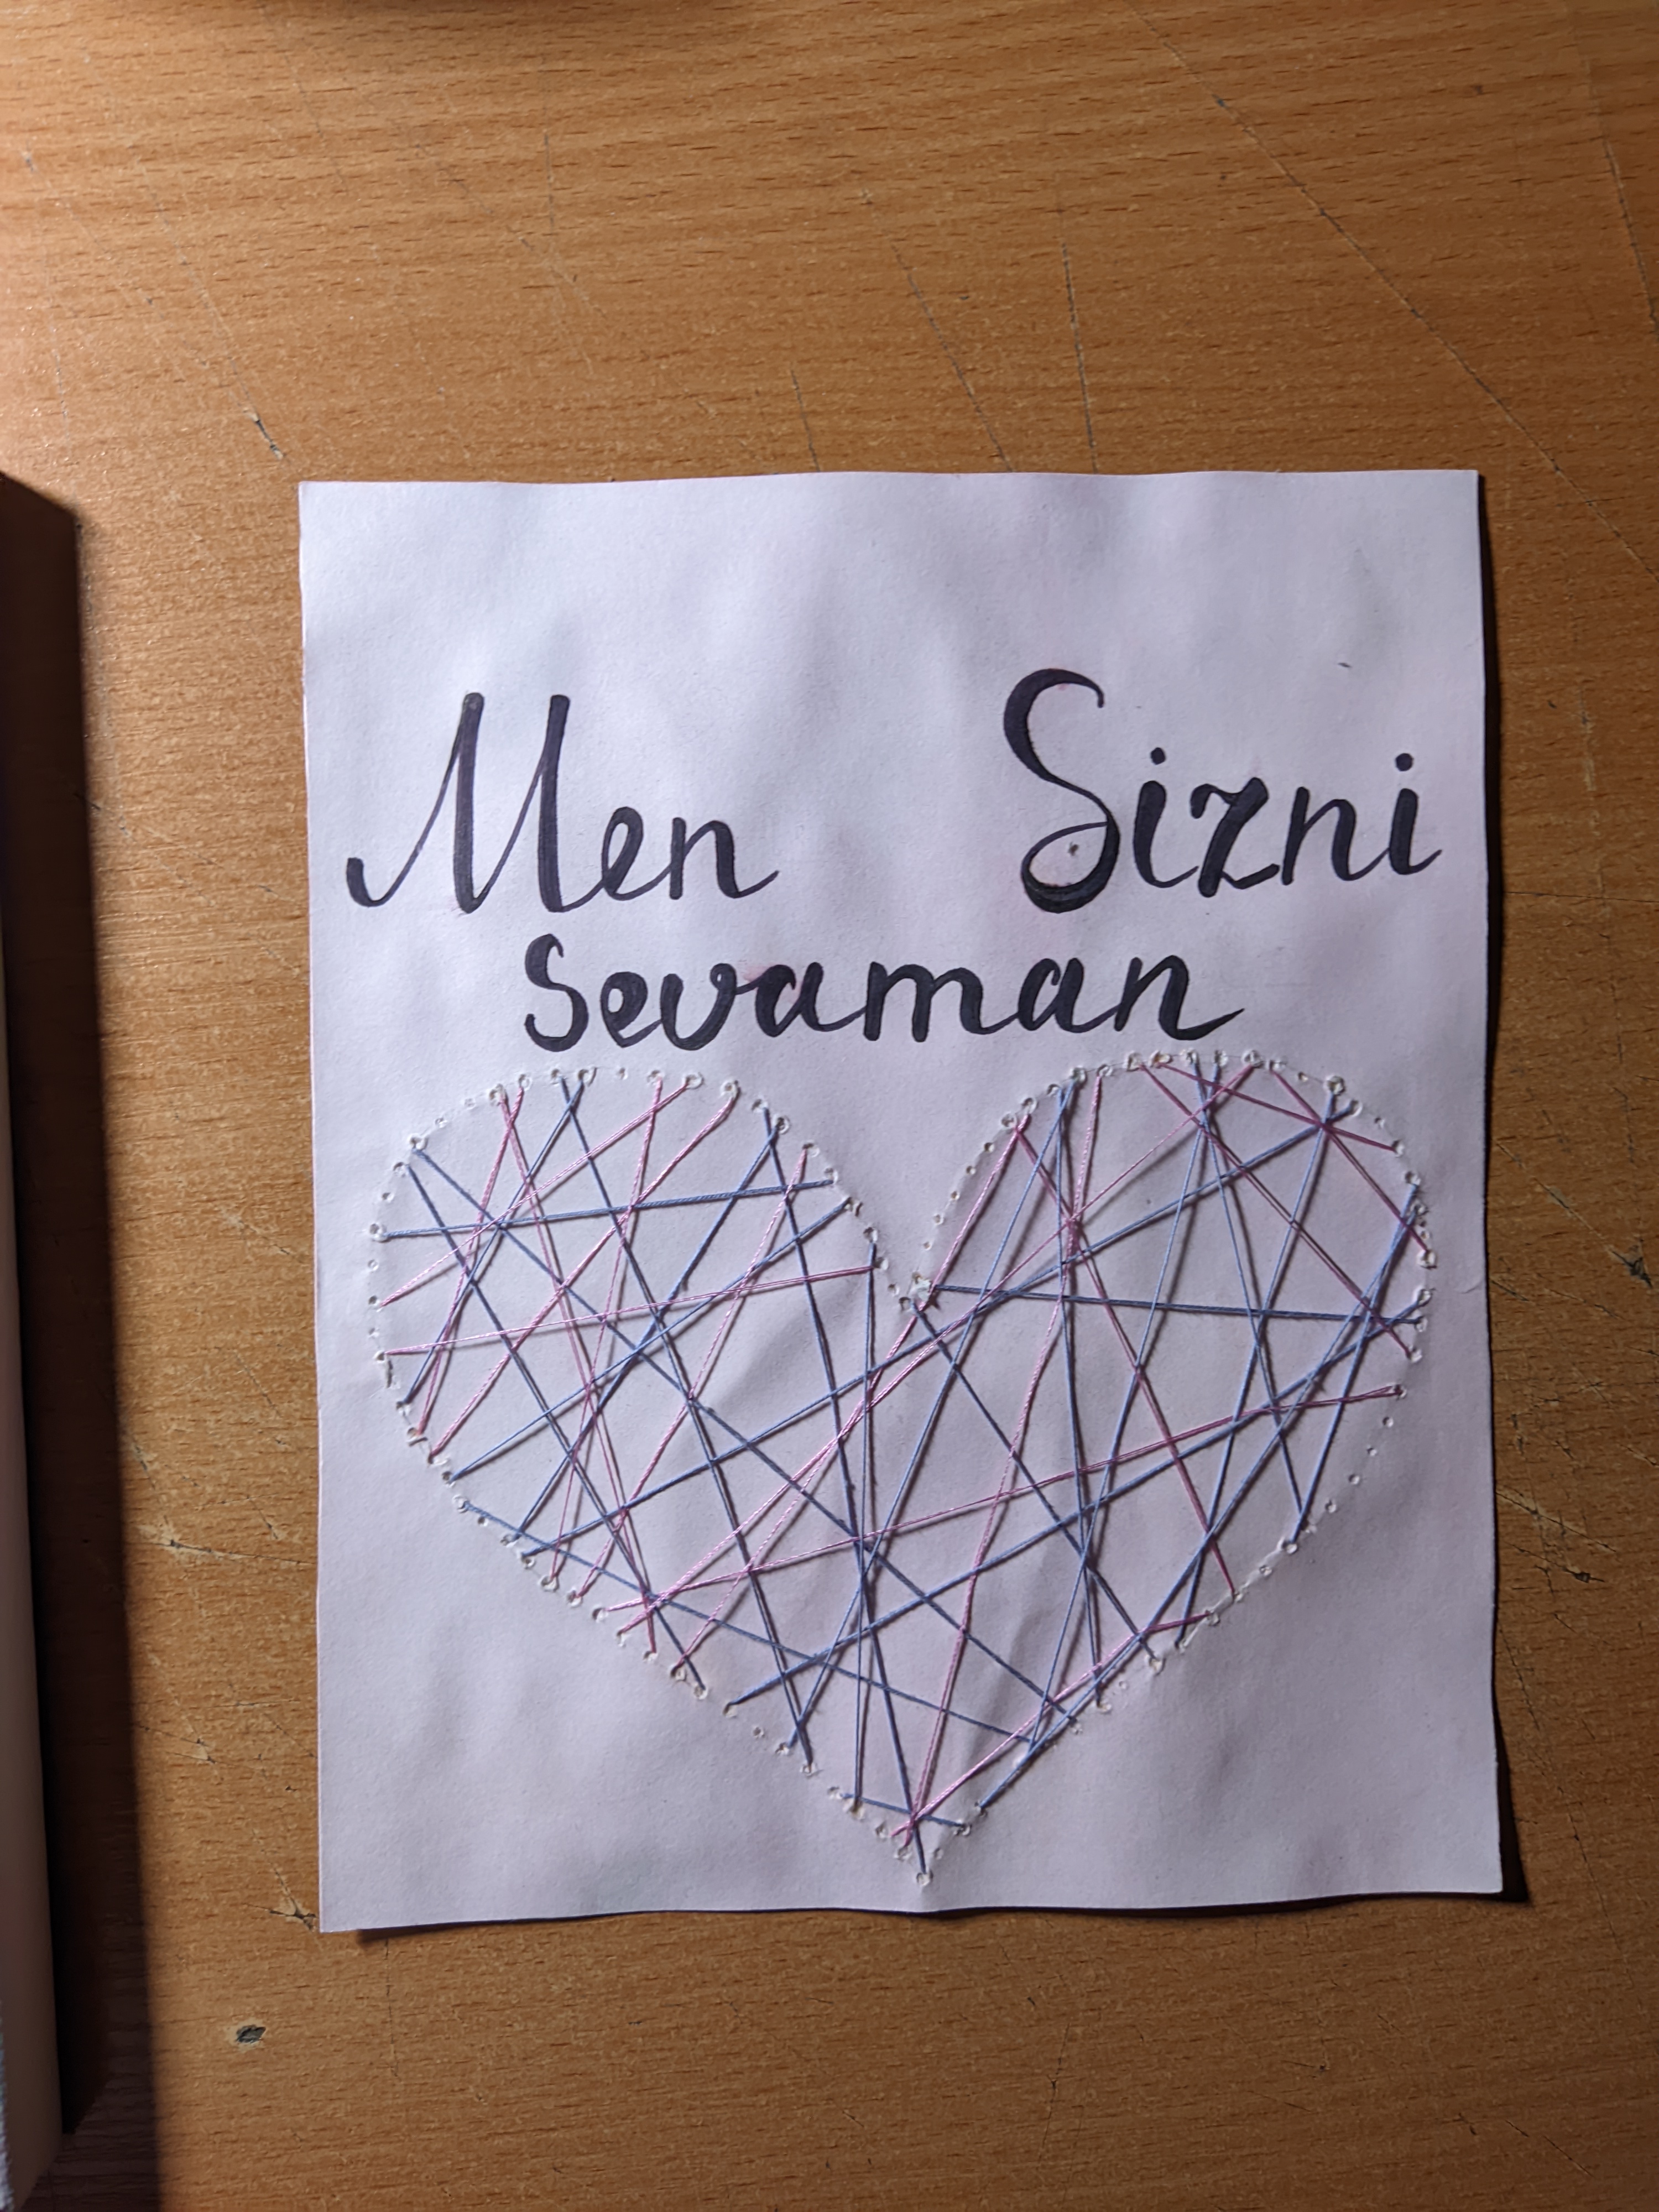 Men Sizni
sevaman